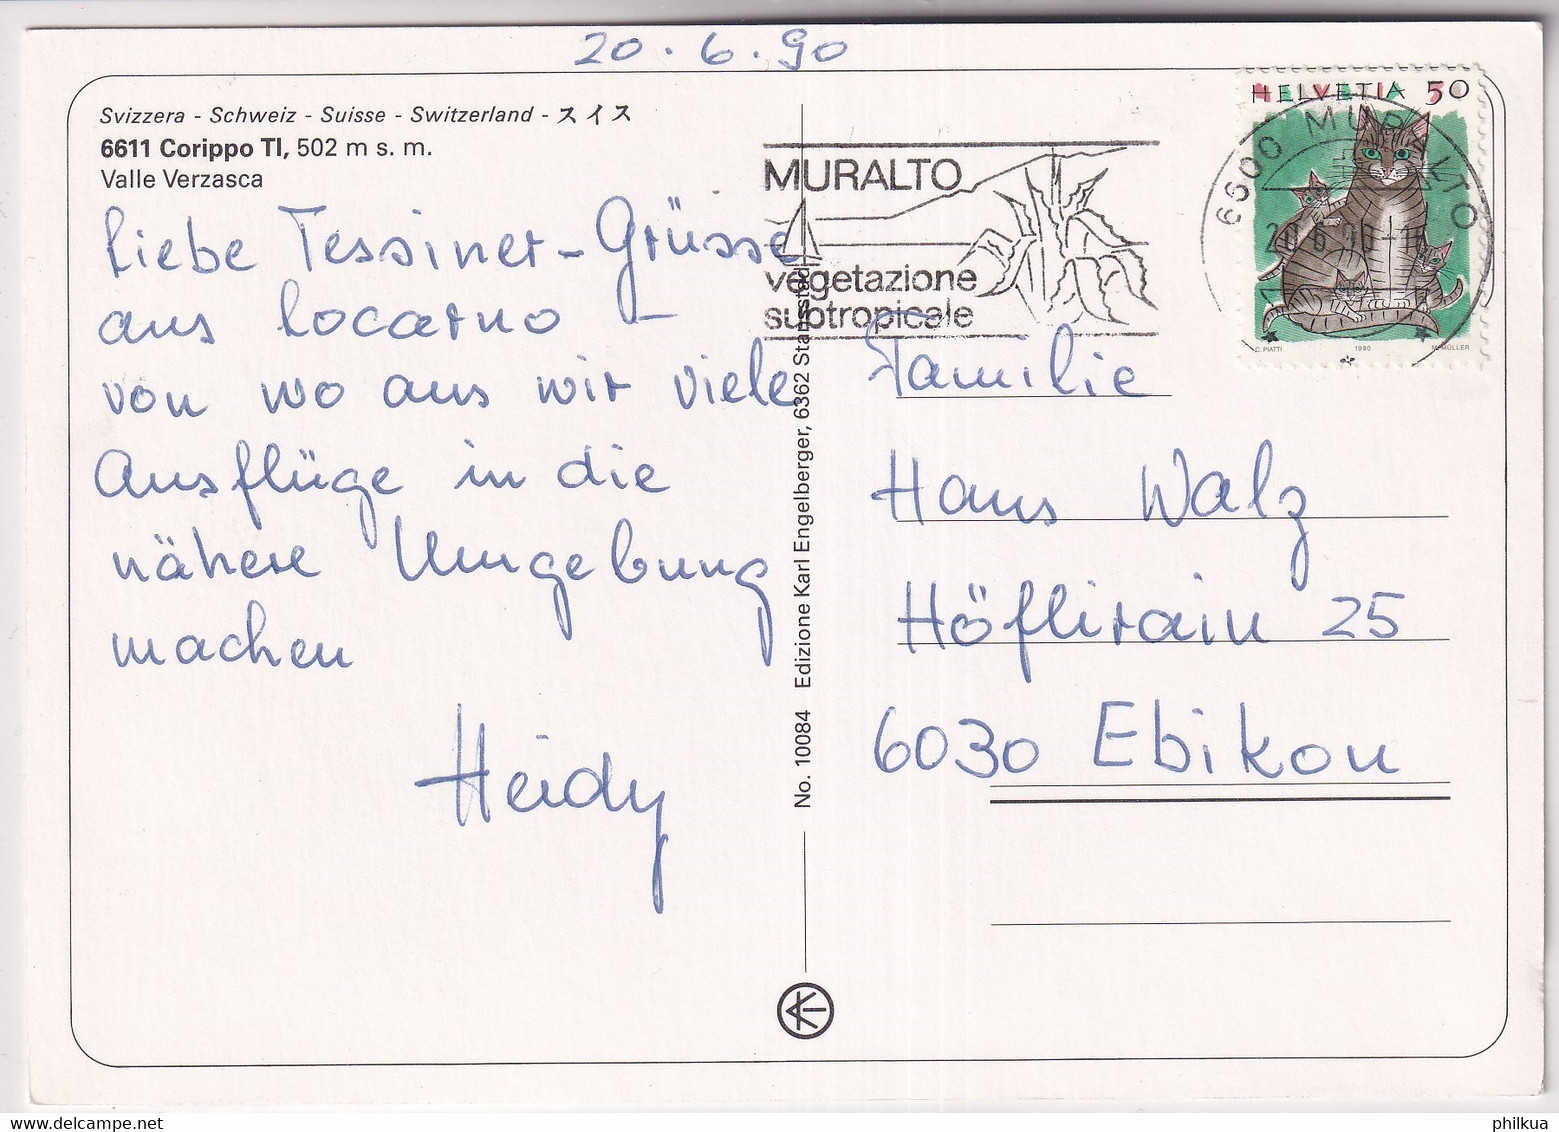 20.6.90
Svizzera - Schweiz - Suisse - Switzerland - スイス
6611 Corippo TI, 502 m s. m.
Valle Verzasca
Liebe Tessiner-Grüsse
aus Locarno –
von wo aus wir viele
Ausflüge in die
nähere Umgebung
machen
Heidy
No. 10084 Edizione Karl Engelberger, 6362 Stansstad
MURALTO
vegetazione
subtropicale
6600 MURALTO
20.6.90-1
HELVETIA 50
C. PIATTI 1990 M. MÜLLER
Familie
Hans Walz
Höflirain 25
6030 Ebikon
philkua